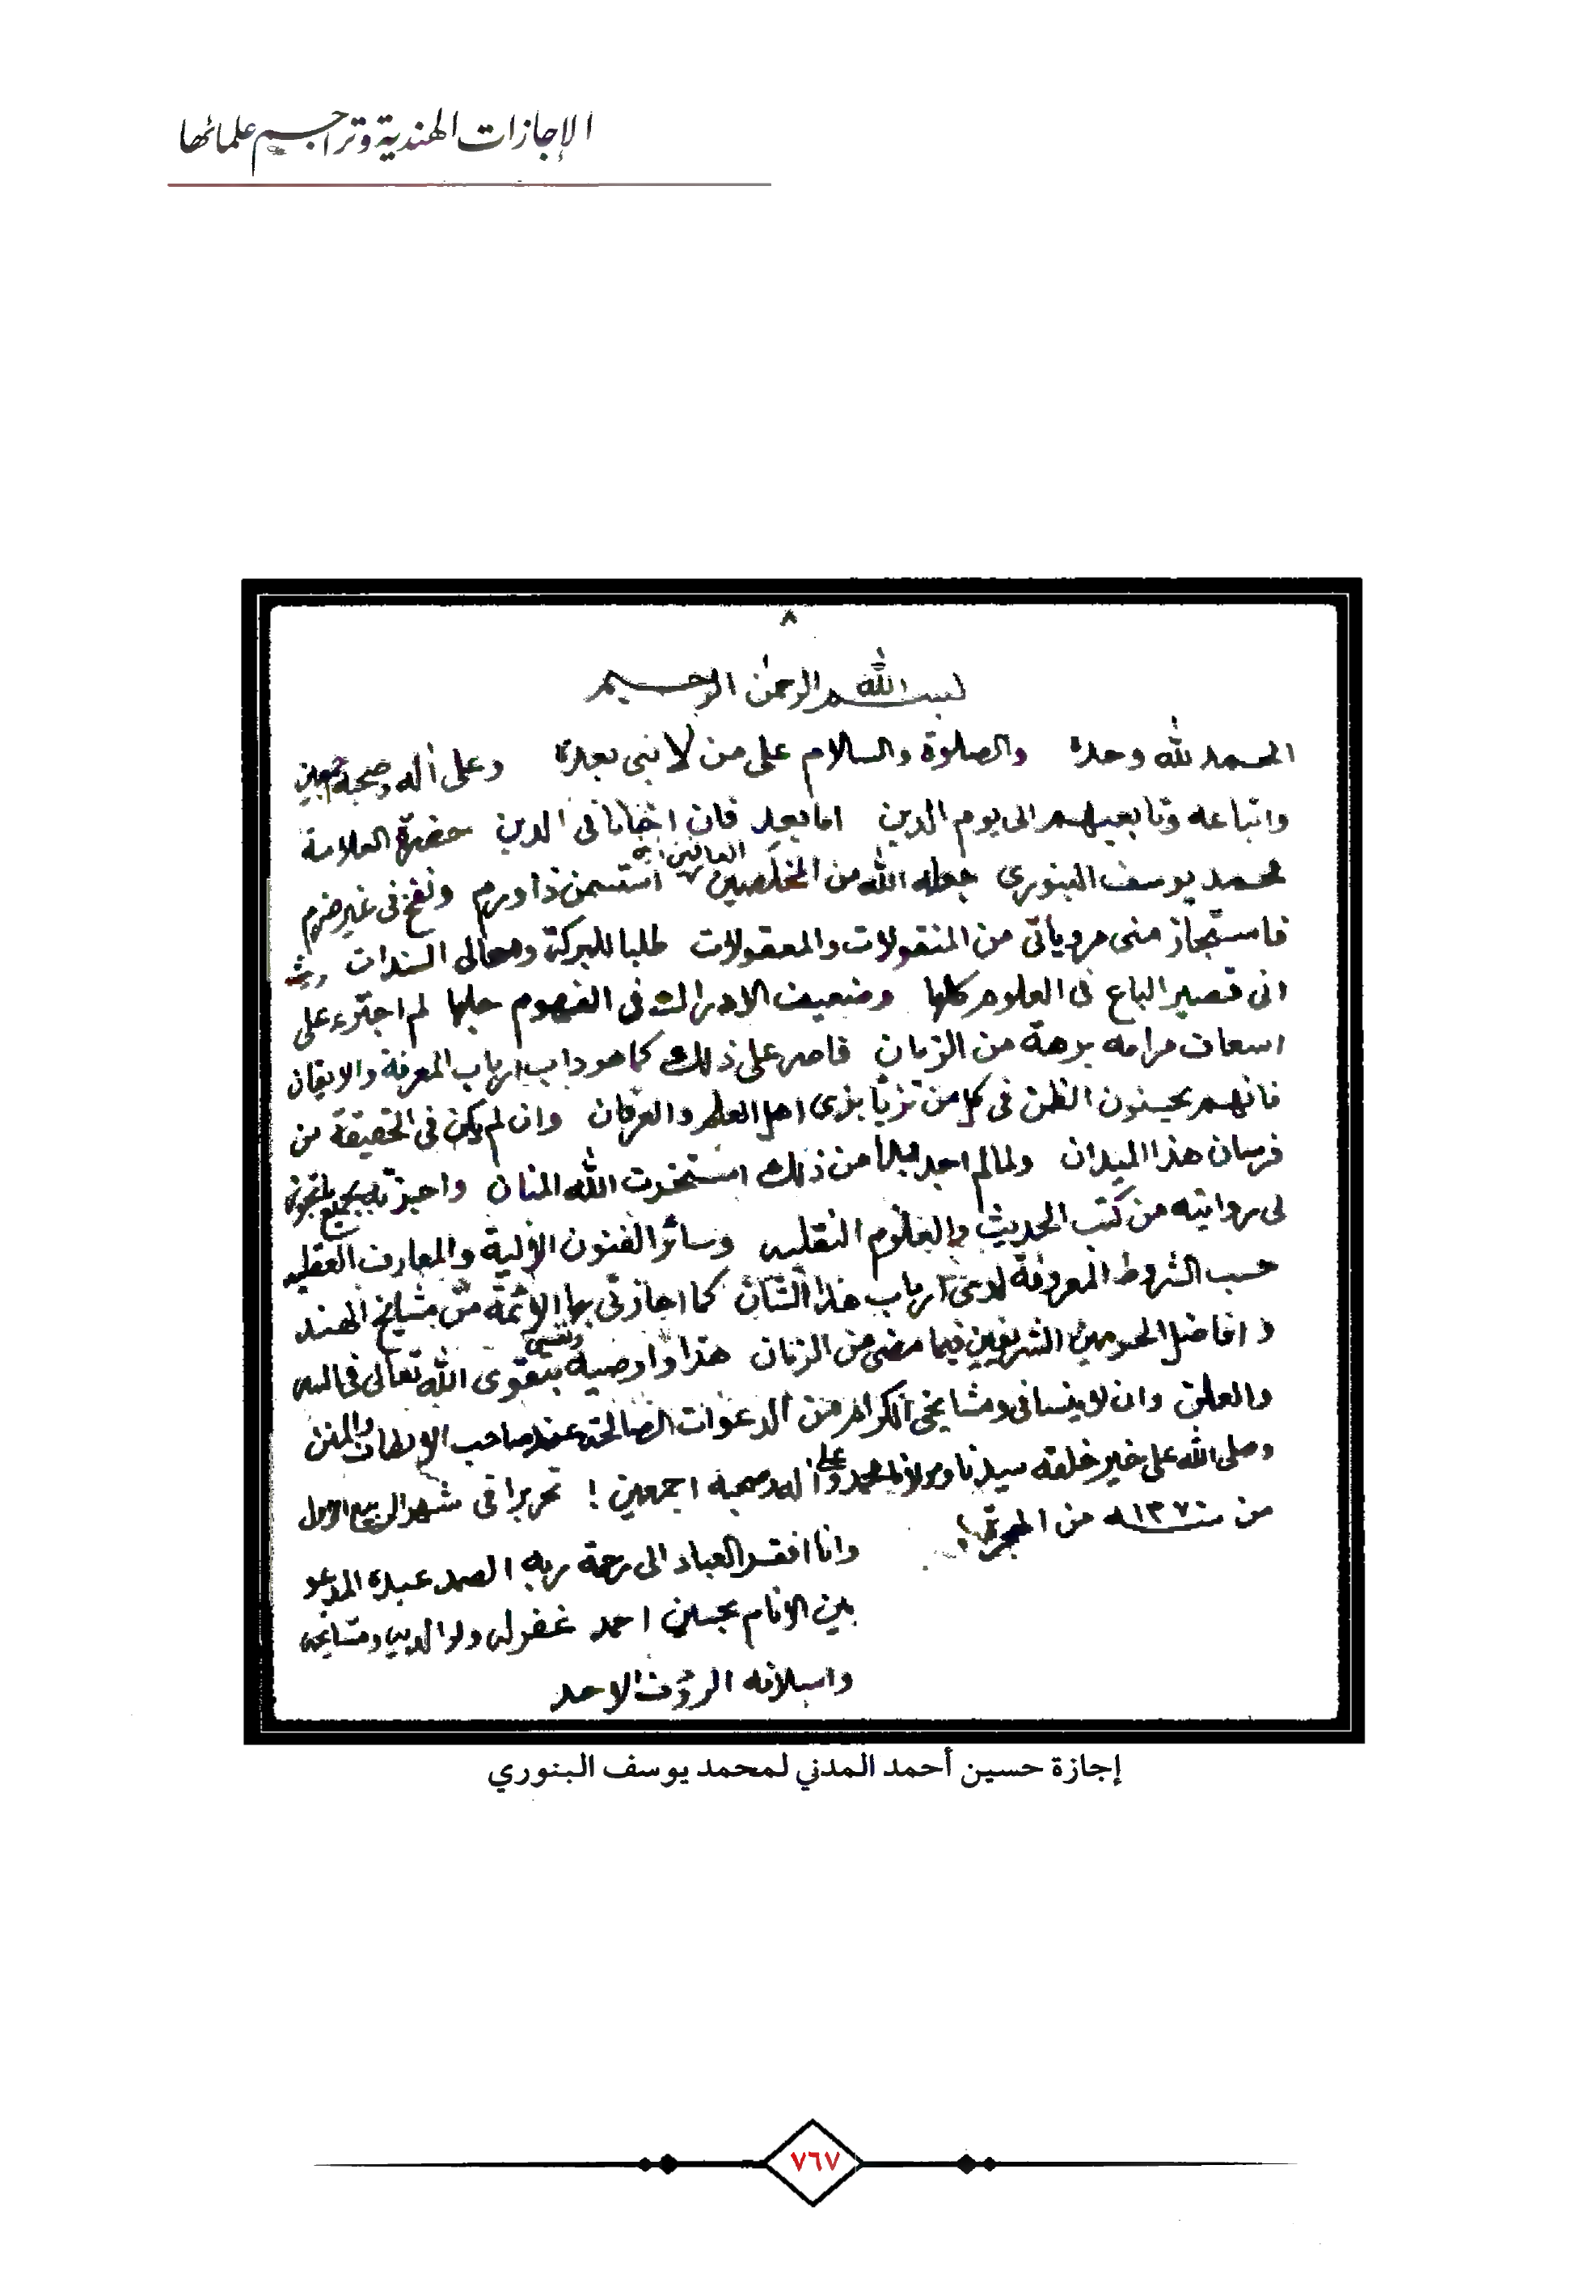 الإجازات الهندية وتراجيم علمائها
٨
بسم الله الرحمن الرحيم
الحمد لله وحدة والصلوة والسلام على من لا نبى بعدة وعلى أله وصحبه اجمعين
واتباعه وتابعيهم الى يوم الدين اما بعد فان اخانا فى الدين حضرة العلامة
محمد يوسف البنورى جعله الله من المخلصين العالمين استسمن ذا ورم ونفخ فى غير ضرم
فاستجاز منى مروياتى من المنقولات والمعقولات طلبا للبركة ومعالى السندات
انى قصير الباع فى العلوم كلها وضعيف الادراك فى الفهوم جلها لم اجترء على
اسعاف مرامه برهة من الزمان فاصر على ذلك كما هو داب ارباب المعرفة والايقان
فانهم يحسنون الظن فى كل من تزيا بزى اهل العلم والعرفان وان لم يكن فى الحقيقة من
فرسان هذا الميدان ولما لم اجد بدا من ذلك استخرت الله المنان واجزته بجميع ما تجوز
لى روايته من كتب الحديث والعلوم النقليه وسائر الفنون الألية والمعارف العقليه
حسب الشروط المعروفة لدى ارباب هذا الشان كما اجازنى بها الائمة من مشايخ الهند
و افاضل الحرمين الشريفين فيما مضى من الزمان هذا واوصيه ونفسى بتقوى الله تعالى فى السر
والعلن وان لا ينسانى ومشايخى الكرام من الدعوات الصالحة عند صاحب الالطاف والمنن
وصلى الله على خير خلقه سيدنا ومولانا محمد وعلى أله وصحبه اجمعين ! تحريرا فى شهر الربيع الاول
من سنة ١٣٧٠ه من الهجرة
وانا افقر العباد الى رحمة ربه الصمد عبدة المدعو
بين الانام بحسين احمد غفر له ولوالديه ومشايخه
واسلافه الرؤف الاحد
إجازة حسين أحمد المدني لمحمد يوسف البنوري
٧٦٧